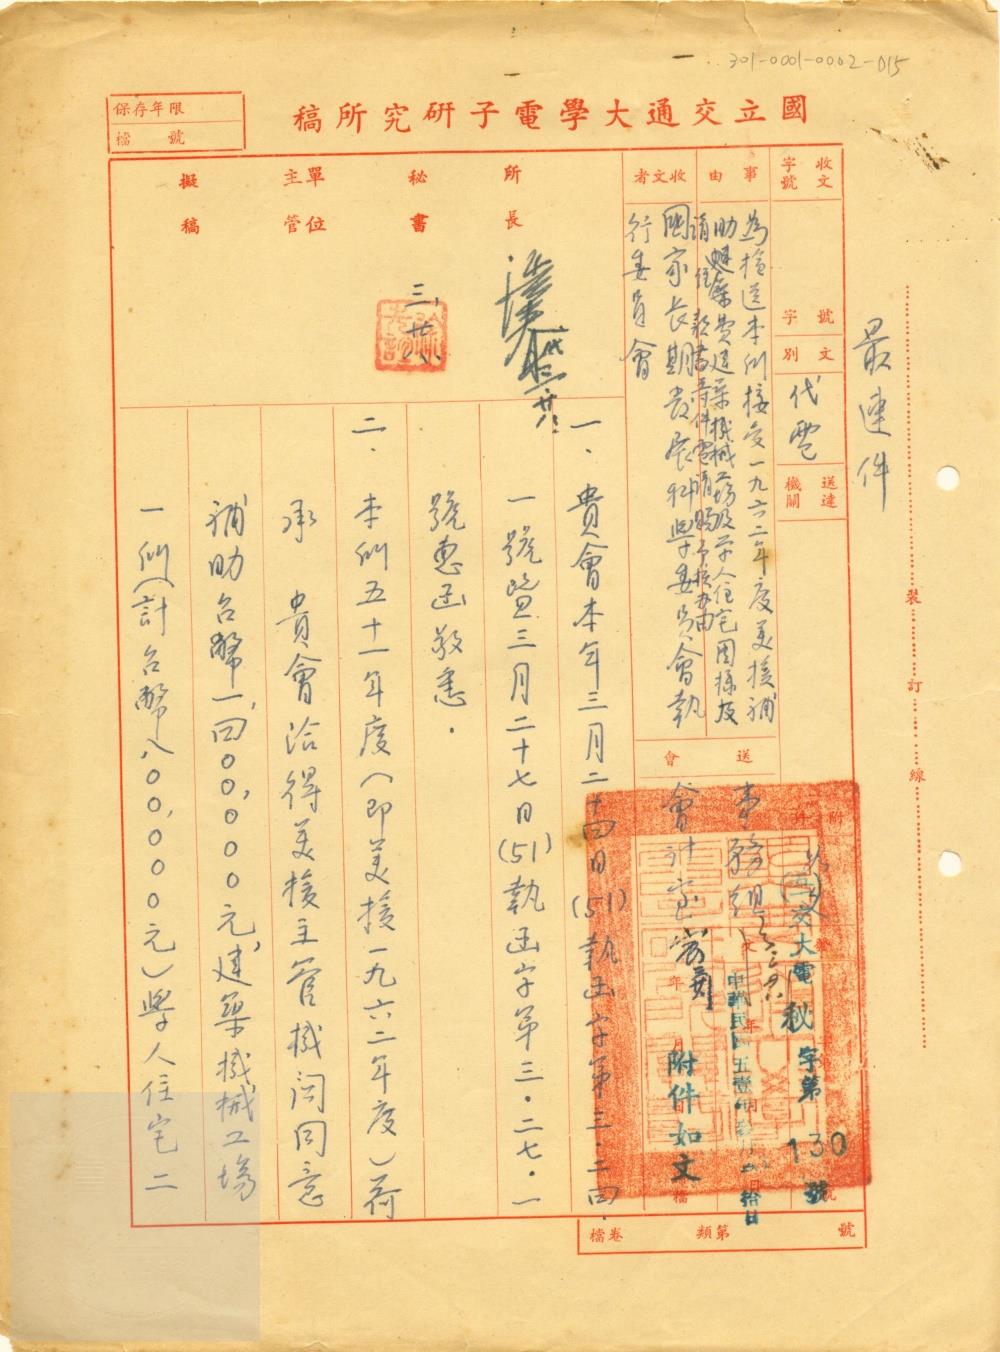 301-0001-0002-015
保存年限
檔號
國立交通大學電子研究所稿
最速件
收文字號
字號
文別
代電
送達機關
附件
事由
為檢送本所接受一九六二年度美援補
助建築費建築機械工場及學人住宅圖樣及
請住款書等件電請賜予核辦由
收文者
國家長期發展科學委員會執
行委員會
送會
事務組
會計室
所長
秘書
三、廿八、
單位主管
擬稿
交大電秘字第130號
中華民國五壹年
附件如文
一、貴會本年三月二十四日(51)執函字第三‧二四‧
一號暨三月二十七日(51)執函字第三‧二七‧一
號惠函敬悉‧
二、本所五十一年度(即美援一九六二年度)荷
承 貴會洽得美援主管機關同意
補助台幣一,四〇〇,〇〇〇元,建築機械工場
一所(計台幣八〇〇,〇〇〇元)學人住宅二
檔卷
類第
號
裝訂線